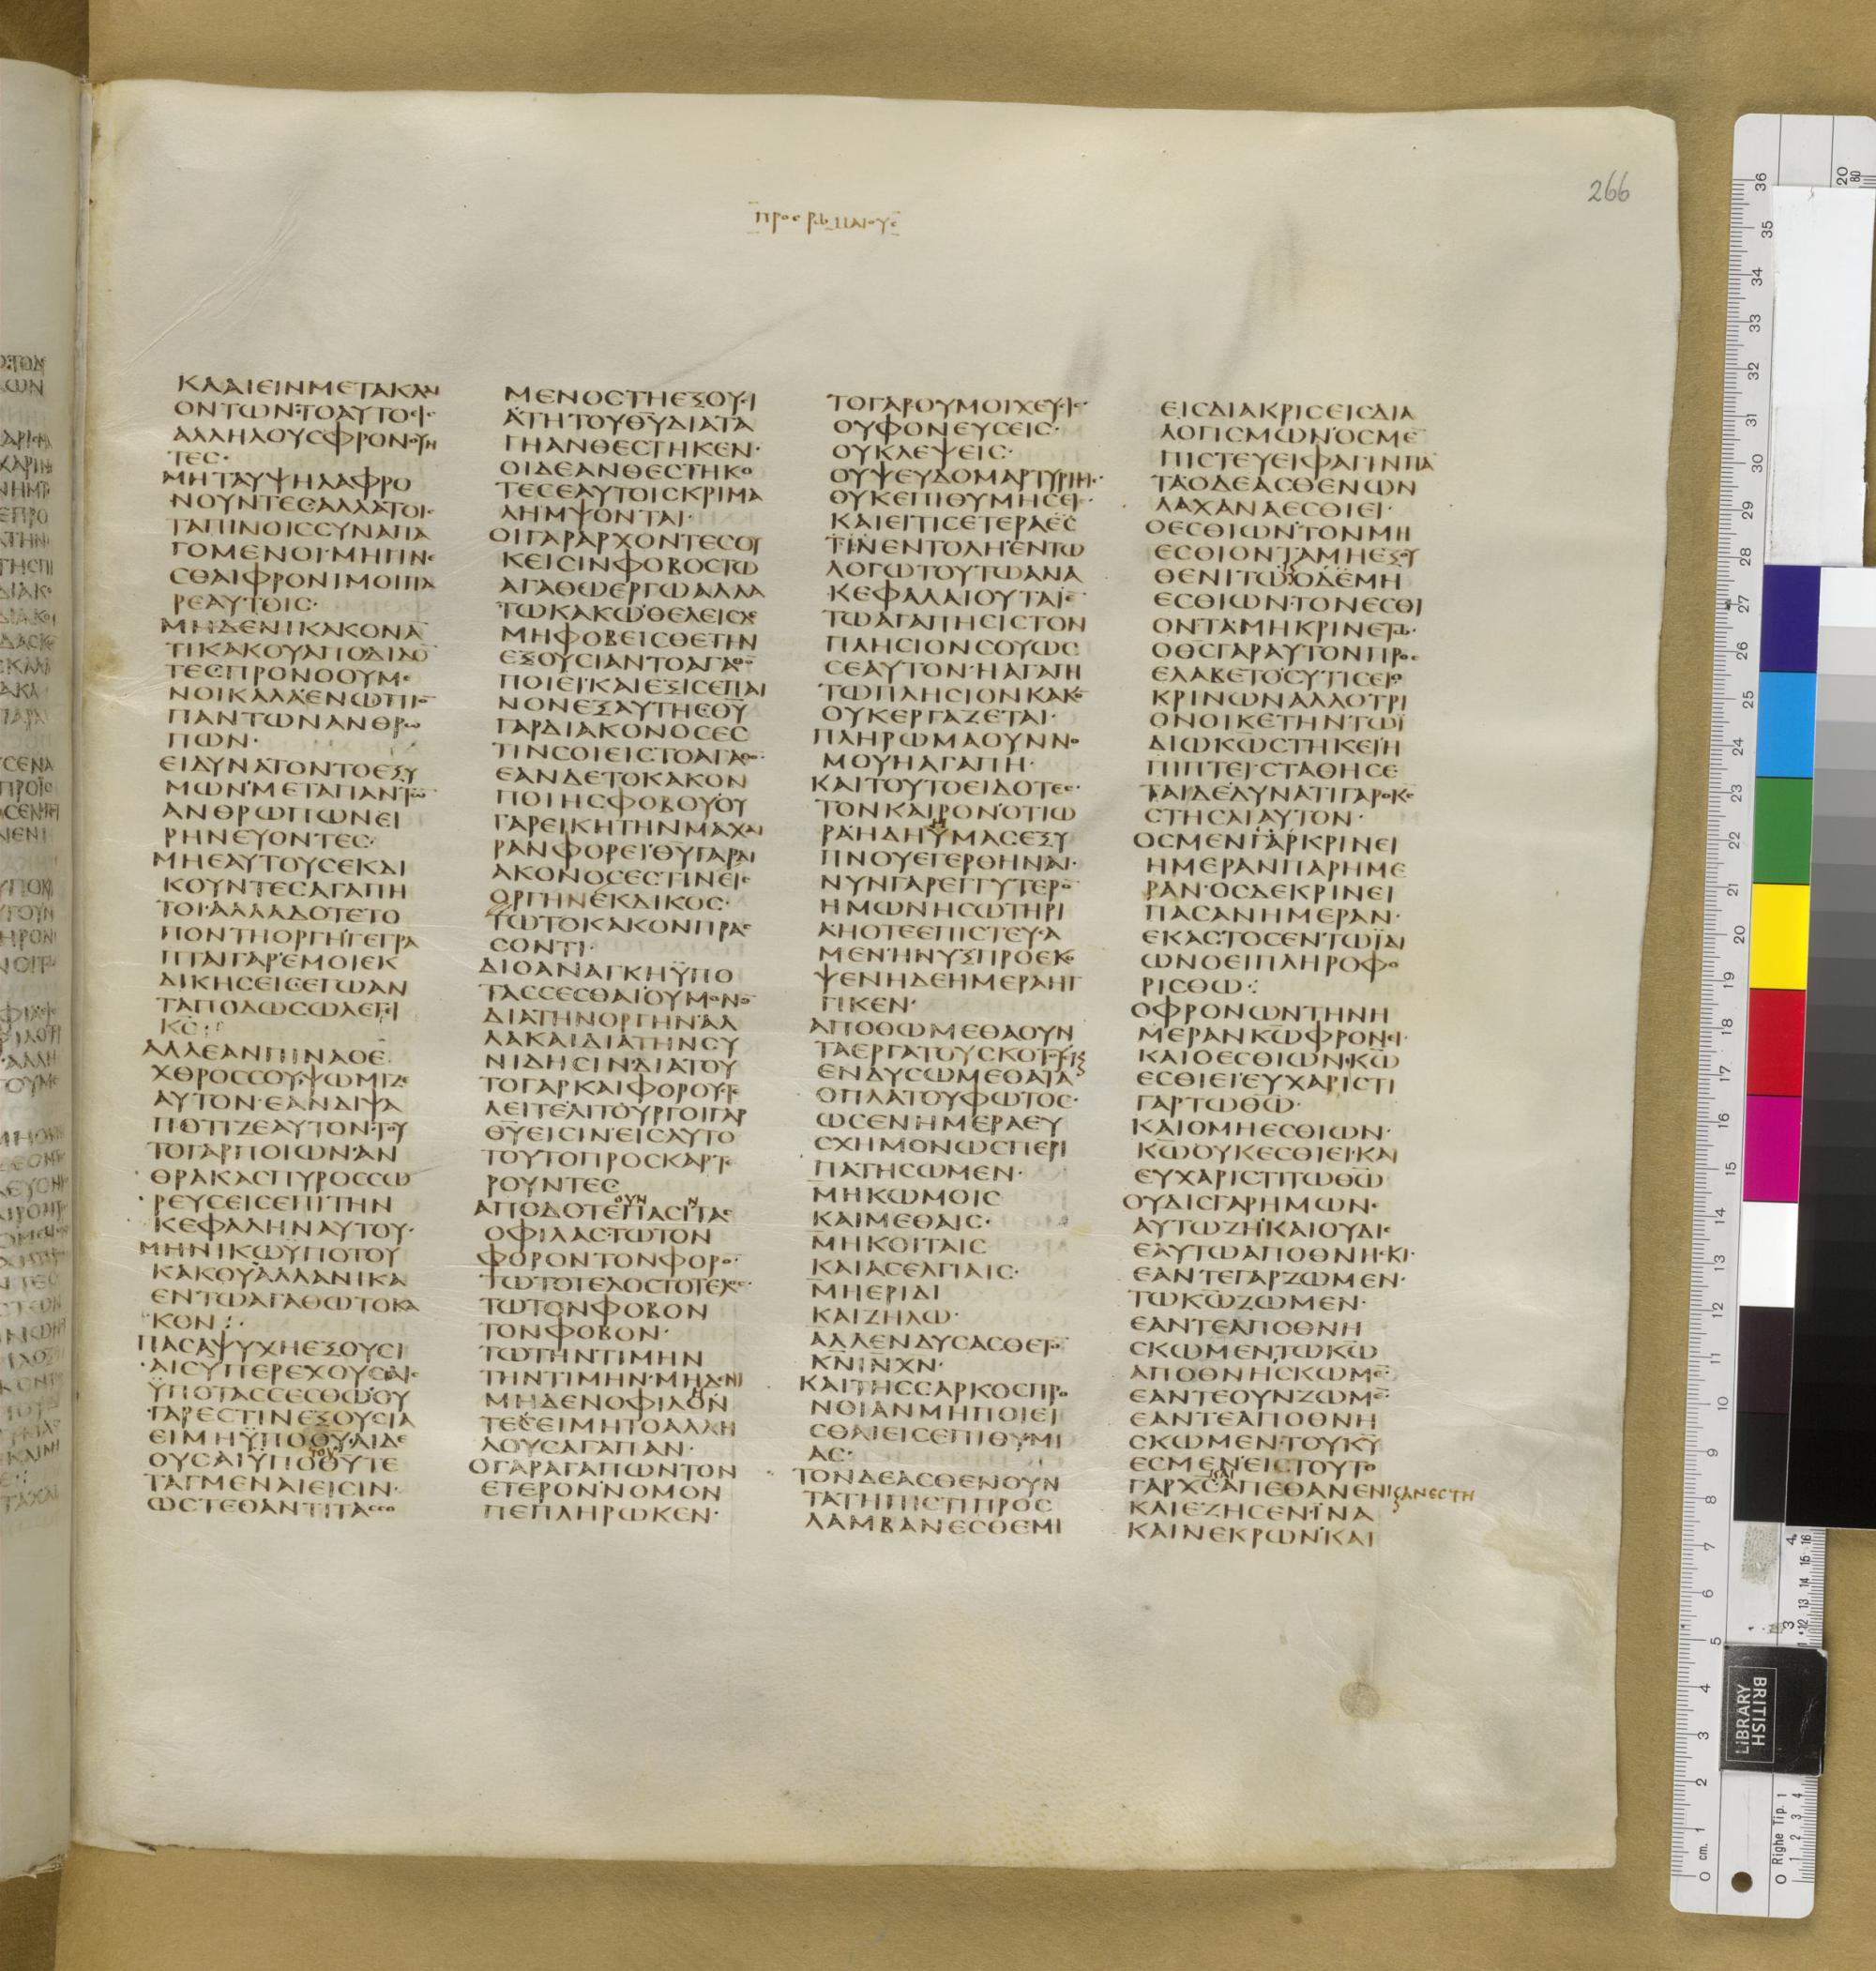 266
ΠΡΟΣ ΡΩΜΑΙΟΥΣ
ΚΛΑΙΕΙΝ ΜΕΤΑ ΚΛΑΙ
ΟΝΤΩΝ ΤΟ ΑΥΤΟ ΕΙΣ
ΑΛΛΗΛΟΥΣ ΦΡΟΝΟΥΝ
ΤΕΣ·
ΜΗ ΤΑ ΥΨΗΛΑ ΦΡΟ
ΝΟΥΝΤΕΣ ΑΛΛΑ ΤΟΙΣ
ΤΑΠΙΝΟΙΣ ΣΥΝΑΠΑ
ΓΟΜΕΝΟΙ ΜΗ ΓΙΝΕ
ΣΘΑΙ ΦΡΟΝΙΜΟΙ ΠΑ
Ρ ΕΑΥΤΟΙΣ·
ΜΗΔΕΝΙ ΚΑΚΟΝ Α̅
ΤΙ ΚΑΚΟΥ ΑΠΟΔΙΔΟ̅
ΤΕΣ ΠΡΟΝΟΟΥΜΕ
ΝΟΙ ΚΑΛΑ ΕΝΩΠΙΟ̅
ΠΑΝΤΩΝ ΑΝΘΡΩ
ΠΩΝ·
ΕΙ ΔΥΝΑΤΟΝ ΤΟ ΕΞ Υ
ΜΩΝ ΜΕΤΑ ΠΑΝΤΩ̅
ΑΝΘΡΩΠΩΝ ΕΙ
ΡΗΝΕΥΟΝΤΕΣ·
ΜΗ ΕΑΥΤΟΥΣ ΕΚΔΙ
ΚΟΥΝΤΕΣ ΑΓΑΠΗ
ΤΟΙ ΑΛΛΑ ΔΟΤΕ ΤΟ
ΠΟΝ ΤΗ ΟΡΓΗ ΓΕΓΡΑ
ΠΤΑΙ ΓΑΡ ΕΜΟΙ ΕΚ
ΔΙΚΗΣΕΙΣ ΕΓΩ ΑΝ
ΤΑΠΟΔΩΣΩ ΛΕΓΕΙ
Κ̅Σ̅:
ΑΛΛΕ ΑΝ ΠΙΝΑ Ο Ε
ΧΘΡΟΣ ΣΟΥ ΨΩΜΙΖΕ
ΑΥΤΟΝ ΕΑΝ ΔΙΨΑ
ΠΟΤΙΖΕ ΑΥΤΟΝ ΤΟΥ
ΤΟ ΓΑΡ ΠΟΙΩΝ ΑΝ
ΘΡΑΚΑΣ ΠΥΡΟΣ ΣΩ
ΡΕΥΣΕΙΣ ΕΠΙ ΤΗΝ
ΚΕΦΑΛΗΝ ΑΥΤΟΥ·
ΜΗ ΝΙΚΩ ΫΠΟ ΤΟΥ
ΚΑΚΟΥ ΑΛΛΑ ΝΙΚΑ
ΕΝ ΤΩ ΑΓΑΘΩ ΤΟ ΚΑ
ΚΟΝ:
ΠΑΣΑ ΨΥΧΗ ΕΞΟΥΣΙ
ΑΙΣ ΥΠΕΡΕΧΟΥΣΑΙΣ
ΫΠΟΤΑΣΣΕΣΘΩ ΟΥ
ΓΑΡ ΕΣΤΙΝ ΕΞΟΥΣΙΑ
ΕΙ ΜΗ ΫΠΟ Θ̅Υ̅ ΑΙ ΔΕ
ΟΥΣΑΙ ΥΠΟ ΤΟΥ Θ̅Υ̅ ΤΕ
ΤΑΓΜΕΝΑΙ ΕΙΣΙΝ·
ΩΣΤΕ Ο ΑΝΤΙΤΑΣΣΟ
ΜΕΝΟΣ ΤΗ ΕΞΟΥΣΙ
Α ΤΗ ΤΟΥ Θ̅Υ̅ ΔΙΑΤΑ
ΓΗ ΑΝΘΕΣΤΗΚΕΝ·
ΟΙ ΔΕ ΑΝΘΕΣΤΗΚΟ
ΤΕΣ ΕΑΥΤΟΙΣ ΚΡΙΜΑ
ΛΗΜΨΟΝΤΑΙ·
ΟΙ ΓΑΡ ΑΡΧΟΝΤΕΣ ΟΥ
Κ ΕΙΣΙΝ ΦΟΒΟΣ ΤΩ
ΑΓΑΘΩ ΕΡΓΩ ΑΛΛΑ
ΤΩ ΚΑΚΩ ΘΕΛΕΙΣ ΔΕ
ΜΗ ΦΟΒΕΙΣΘΕ ΤΗΝ
ΕΞΟΥΣΙΑΝ ΤΟ ΑΓΑΘΟ̅
ΠΟΙΕΙ ΚΑΙ ΕΞΙΣ ΕΠΑΙ
ΝΟΝ ΕΞ ΑΥΤΗΣ Θ̅Υ̅
ΓΑΡ ΔΙΑΚΟΝΟΣ ΕΣ
ΤΙΝ ΣΟΙ ΕΙΣ ΤΟ ΑΓΑΘΟ̅·
ΕΑΝ ΔΕ ΤΟ ΚΑΚΟΝ
ΠΟΙΗΣ ΦΟΒΟΥ ΟΥ
ΓΑΡ ΕΙΚΗ ΤΗΝ ΜΑΧΑΙ
ΡΑΝ ΦΟΡΕΙ Θ̅Υ̅ ΓΑΡ ΔΙ
ΑΚΟΝΟΣ ΕΣΤΙΝ ΕΙΣ
ΟΡΓΗΝ ΕΚΔΙΚΟΣ·
ΤΩ ΤΟ ΚΑΚΟΝ ΠΡΑΣ
ΣΟΝΤΙ·
ΔΙΟ ΑΝΑΓΚΗ ΫΠΟ
ΤΑΣΣΕΣΘΑΙ ΟΥ ΜΟΝΟ̅
ΔΙΑ ΤΗΝ ΟΡΓΗΝ ΑΛ
ΛΑ ΚΑΙ ΔΙΑ ΤΗΝ ΣΥ
ΝΙΔΗΣΙΝ ΔΙΑ ΤΟΥ
ΤΟ ΓΑΡ ΚΑΙ ΦΟΡΟΥΣ ΤΕ
ΛΕΙΤΕ ΛΙΤΟΥΡΓΟΙ ΓΑΡ
Θ̅Υ̅ ΕΙΣΙΝ ΕΙΣ ΑΥΤΟ
ΤΟΥΤΟ ΠΡΟΣΚΑΡΤΕ
ΡΟΥΝΤΕΣ
ΑΠΟΔΟΤΕ ΟΥΝ ΠΑΣΙΝ ΤΑΣ
ΟΦΙΛΑΣ ΤΩ ΤΟΝ
ΦΟΡΟΝ ΤΟΝ ΦΟΡΟ̅·
ΤΩ ΤΟ ΤΕΛΟΣ ΤΟ ΤΕΛΟΣ·
ΤΩ ΤΟΝ ΦΟΒΟΝ
ΤΟΝ ΦΟΒΟΝ·
ΤΩ ΤΗΝ ΤΙΜΗΝ
ΤΗΝ ΤΙΜΗΝ ΜΗΔΕΝΙ
ΜΗΔΕΝ ΟΦΙΛΟΝ
ΤΕΣ ΕΙ ΜΗ ΤΟ ΑΛΛΗ
ΛΟΥΣ ΑΓΑΠΑΝ·
Ο ΓΑΡ ΑΓΑΠΩΝ ΤΟΝ
ΕΤΕΡΟΝ ΝΟΜΟΝ
ΠΕΠΛΗΡΩΚΕΝ·
ΤΟ ΓΑΡ ΟΥ ΜΟΙΧΕΥΣΙΣ
ΟΥ ΦΟΝΕΥΣΕΙΣ·
ΟΥ ΚΛΕΨΕΙΣ·
ΟΥ ΨΕΥΔΟΜΑΡΤΥΡΗΣΙΣ·
ΟΥΚ ΕΠΙΘΥΜΗΣΕΙΣ·
ΚΑΙ ΕΙ ΤΙΣ ΕΤΕΡΑ ΕΣ
ΤΙΝ ΕΝΤΟΛΗ ΕΝ ΤΩ
ΛΟΓΩ ΤΟΥΤΩ ΑΝΑ
ΚΕΦΑΛΑΙΟΥΤΑΙ Ε̅
ΤΩ ΑΓΑΠΗΣΙΣ ΤΟΝ
ΠΛΗΣΙΟΝ ΣΟΥ ΩΣ
ΣΕΑΥΤΟΝ Η ΑΓΑΠΗ
ΤΩ ΠΛΗΣΙΟΝ ΚΑΚΟ̅
ΟΥΚ ΕΡΓΑΖΕΤΑΙ·
ΠΛΗΡΩΜΑ ΟΥΝ ΝΟ
ΜΟΥ Η ΑΓΑΠΗ·
ΚΑΙ ΤΟΥΤΟ ΕΙΔΟΤΕΣ·
ΤΟΝ ΚΑΙΡΟΝ ΟΤΙ Ω
ΡΑ ΗΔΗ ΥΜΑΣ ΕΞ Υ
ΠΝΟΥ ΕΓΕΡΘΗΝΑΙ·
ΝΥΝ ΓΑΡ ΕΓΓΥΤΕΡΟ̅
ΗΜΩΝ Η ΣΩΤΗΡΙ
Α Η ΟΤΕ ΕΠΙΣΤΕΥΣΑ
ΜΕΝ Η ΝΥΞ ΠΡΟΕΚΟ
ΨΕΝ Η ΔΕ ΗΜΕΡΑ ΗΓ
ΓΙΚΕΝ·
ΑΠΟΘΩΜΕΘΑ ΟΥΝ
ΤΑ ΕΡΓΑ ΤΟΥ ΣΚΟΤΟΥΣ
ΕΝΔΥΣΩΜΕΘΑ ΤΑ
ΟΠΛΑ ΤΟΥ ΦΩΤΟΣ·
ΩΣ ΕΝ ΗΜΕΡΑ ΕΥ
ΣΧΗΜΟΝΩΣ ΠΕΡΙ
ΠΑΤΗΣΩΜΕΝ·
ΜΗ ΚΩΜΟΙΣ
ΚΑΙ ΜΕΘΑΙΣ·
ΜΗ ΚΟΙΤΑΙΣ
ΚΑΙ ΑΣΕΛΓΙΑΙΣ·
ΜΗ ΕΡΙΔΙ
ΚΑΙ ΖΗΛΩ·
ΑΛΛ ΕΝΔΥΣΑΣΘΕ ΤΟ̅
Κ̅Ν̅ Ι̅Ν̅ Χ̅Ν̅·
ΚΑΙ ΤΗΣ ΣΑΡΚΟΣ ΠΡΟ
ΝΟΙΑΝ ΜΗ ΠΟΙΕΙ
ΣΘΑΙ ΕΙΣ ΕΠΙΘΥΜΙ
ΑΣ·
ΤΟΝ ΔΕ ΑΣΘΕΝΟΥΝ
ΤΑ ΤΗ ΠΙΣΤΙ ΠΡΟΣ
ΛΑΜΒΑΝΕΣΘΕ ΜΙ
ΕΙΣ ΔΙΑΚΡΙΣΕΙΣ ΔΙΑ
ΛΟΓΙΣΜΩΝ ΟΣ ΜΕ̅
ΠΙΣΤΕΥΕΙ ΦΑΓΙΝ ΠΑ̅
ΤΑ Ο ΔΕ ΑΣΘΕΝΩΝ
ΛΑΧΑΝΑ ΕΣΘΙΕΙ·
Ο ΕΣΘΙΩΝ ΤΟΝ ΜΗ
ΕΣΘΙΟΝΤΑ ΜΗ ΕΞΟΥ
ΘΕΝΙΤΩ Ο ΔΕ ΜΗ
ΕΣΘΙΩΝ ΤΟΝ ΕΣΘΙ
ΟΝΤΑ ΜΗ ΚΡΙΝΕΤΩ·
Ο Θ̅Σ̅ ΓΑΡ ΑΥΤΟΝ ΠΡΟΣ
ΕΛΑΒΕΤΟ ΣΥ ΤΙΣ ΕΙ Ο
ΚΡΙΝΩΝ ΑΛΛΟΤΡΙ
ΟΝ ΟΙΚΕΤΗΝ ΤΩ Ϊ
ΔΙΩ Κ̅Ω̅ ΣΤΗΚΕΙ Η
ΠΙΠΤΕΙ ΣΤΑΘΗΣΕ
ΤΑΙ ΔΕ ΔΥΝΑΤΙ ΓΑΡ Ο Κ̅Σ̅
ΣΤΗΣΑΙ ΑΥΤΟΝ·
ΟΣ ΜΕΝ ΓΑΡ ΚΡΙΝΕΙ
ΗΜΕΡΑΝ ΠΑΡ ΗΜΕ
ΡΑΝ ΟΣ ΔΕ ΚΡΙΝΕΙ
ΠΑΣΑΝ ΗΜΕΡΑΝ·
ΕΚΑΣΤΟΣ ΕΝ ΤΩ ΪΔΙ
Ω ΝΟΕΙ ΠΛΗΡΟΦΟ
ΡΙΣΘΩ:
Ο ΦΡΟΝΩΝ ΤΗΝ Η
ΜΕΡΑΝ Κ̅Ω̅ ΦΡΟΝΕΙ·
ΚΑΙ Ο ΕΣΘΙΩΝ Κ̅Ω̅
ΕΣΘΙΕΙ ΕΥΧΑΡΙΣΤΙ
ΓΑΡ ΤΩ Θ̅Ω̅·
ΚΑΙ Ο ΜΗ ΕΣΘΙΩΝ·
Κ̅Ω̅ ΟΥΚ ΕΣΘΙΕΙ ΚΑΙ
ΕΥΧΑΡΙΣΤΙ ΤΩ Θ̅Ω̅
ΟΥΔΙΣ ΓΑΡ ΗΜΩΝ·
ΑΥΤΩ ΖΗ ΚΑΙ ΟΥΔΙΣ
ΕΑΥΤΩ ΑΠΟΘΝΗΣΚΙ·
ΕΑΝ ΤΕ ΓΑΡ ΖΩΜΕΝ·
ΤΩ Κ̅Ω̅ ΖΩΜΕΝ·
ΕΑΝ ΤΕ ΑΠΟΘΝΗ
ΣΚΩΜΕΝ ΤΩ Κ̅Ω̅
ΑΠΟΘΝΗΣΚΩΜΕ̅·
ΕΑΝ ΤΕ ΟΥΝ ΖΩΜΕ̅·
ΕΑΝ ΤΕ ΑΠΟΘΝΗ
ΣΚΩΜΕΝ ΤΟΥ Κ̅Υ̅
ΕΣΜΕΝ ΕΙΣ ΤΟΥΤΟ
ΓΑΡ Χ̅Σ̅ ΚΑΙ ΑΠΕΘΑΝΕΝ ΚΑΙ ΑΝΕΣΤΗ
ΚΑΙ ΕΖΗΣΕΝ ΪΝΑ
ΚΑΙ ΝΕΚΡΩΝ ΚΑΙ